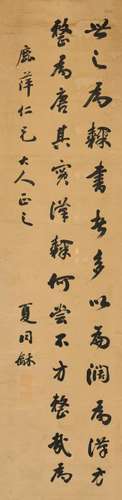 世之為隸書者多以扁濶為漢方
整為唐其實漢隸何嘗不方整哉為
鹿苹仁兄大人正之
夏同龢